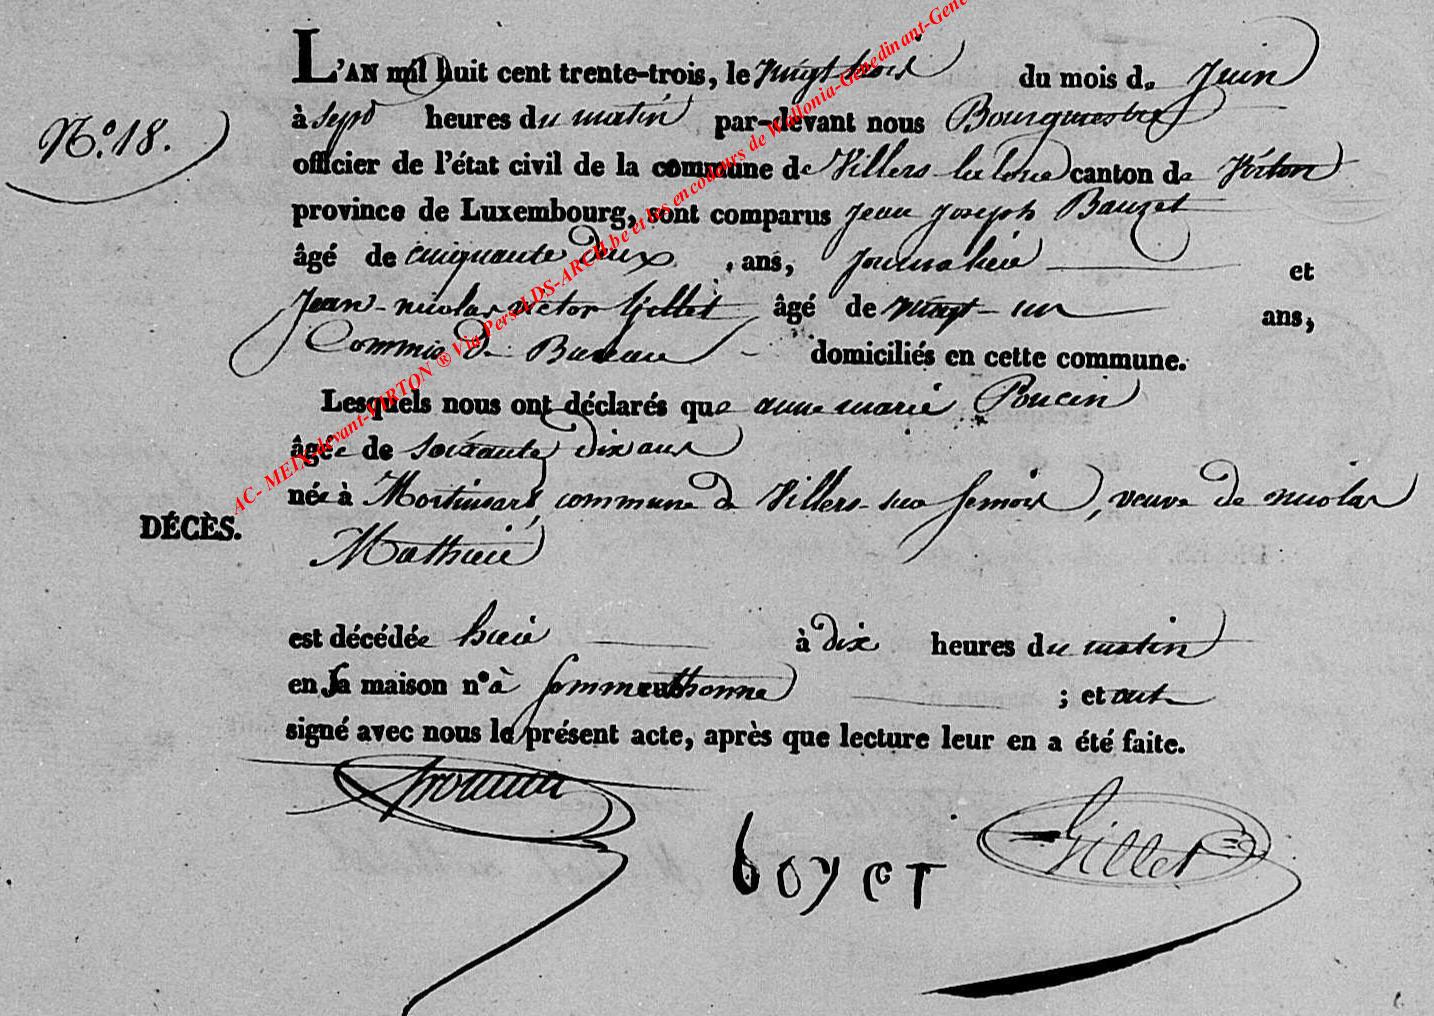 L'AN mil huit cent trente-trois, le vingt trois du mois de Juin
N.° 18.
à sept heures du matin par-devant nous Bourgmestre
officier de l'état civil de la commune de Villers-la loue canton de Virton
province de Luxembourg, sont comparus Jean Joseph Bauzet
âgé de cinquante deux ans, journalier et
Jean-nicolas victor Gillet âgé de vingt-un ans,
Commis de Bureau domiciliés en cette commune.
Lesquels nous ont déclarés que anne marie Poncin
âgée de soixante dix ans
née à Mortinsart, commune de Villers-sur Semois, veuve de nicolas
DÉCÈS.
Mathieu
est décédée hier à dix heures du matin
en sa maison n° à Sommethonne ; et ont
signé avec nous le présent acte, après que lecture leur en a été faite.
boyet Gillet
AC- MEIX-devant-VIRTON ® Via Pers LDS-ARCH.be et les encodeurs de Wallonia-Genedinant-Gene